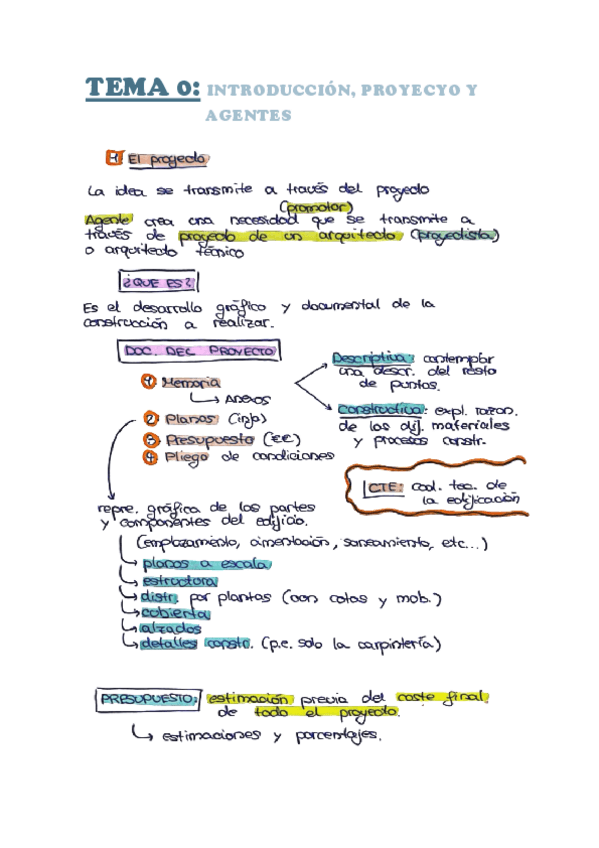 TEMA 0: INTRODUCCIÓN, PROYECYO Y
AGENTES
1 El proyecto
La idea se transmite a través del proyecto
(promotor)
Agente crea una necesidad que se transmite a
través de proyecto de un arquitecto (proyectista)
o arquitecto técnico
¿QUE ES?
Es el desarrollo gráfico y documental de la
construcción a realizar.
DOC. DEL PROYECTO
1 Memoria
↳ Anexos
Descriptiva: contemplar
una descr. del resto
de puntos.
Constructiva: expl. razon.
de los dif. materiales
y procesos constr.
2 Planos (info)
3 Presupuesto (€€)
4 Pliego de condiciones
CTE: cod. tec. de
la edificación
repre. gráfica de las partes
y componentes del edificio.
(emplazamiento, cimentación, saneamiento, etc...)
↳ planos a escala
↳ estructura
↳ distr. por plantas (con cotas y mob.)
↳ cubierta
↳ alzados
↳ detalles constr. (p.e. solo la carpintería)
PRESUPUESTO: estimación previa del coste final
de todo el proyecto.
↳ estimaciones y porcentajes.